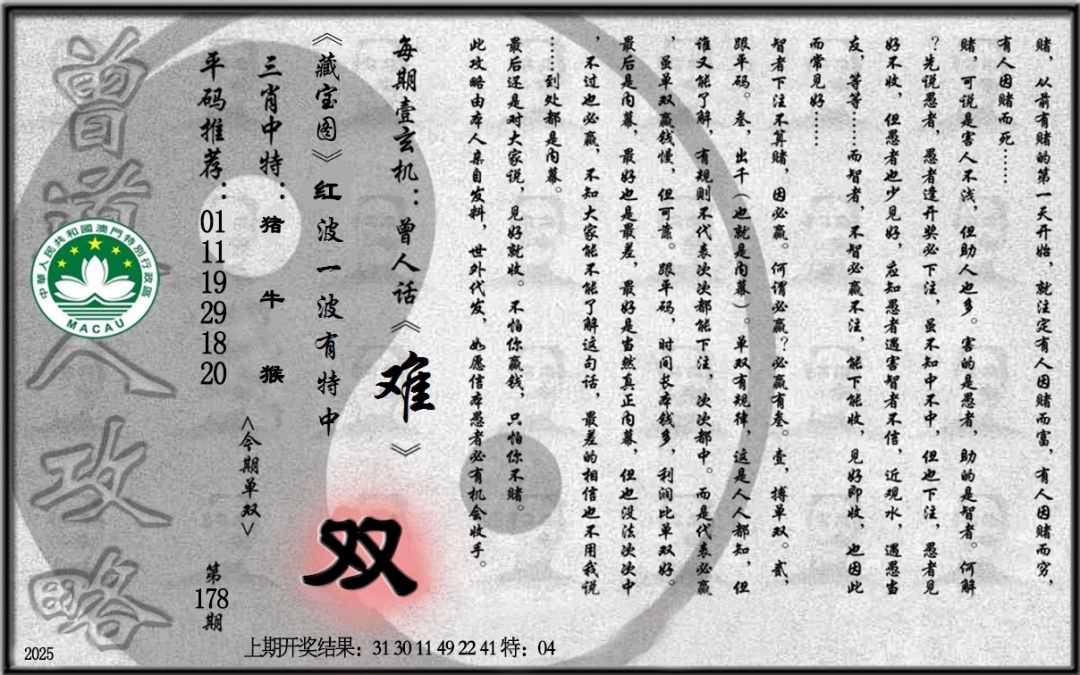 赌，从前有赌的第一天开始，就注定有人因赌而富，有人因赌而穷，
有人因赌而死……
赌，可说是害人不浅，但助人也多。害的是愚者，助的是智者。何解
？先说愚者，愚者逢开奖必下注，虽不知中不中，但也下注，愚者见
好不收，但愚者也少见好，应知愚者遇害智者不信，近观水，遇愚当
友，等等……而智者，不智必赢不注，能下能收，见好即收，也因此
而常见好……
智者下注不算赌，因必赢。何谓必赢？必赢有叁。壹，搏单双。贰，
跟平码。叁，出千（也就是内幕）。单双有规律，这是人人都知，但
谁又能了解，有规则不代表次次都能下注，次次都中。而是代表必赢
，虽单双赢钱慢，但可靠。跟平码，时间长本钱多，利润比单双好。
最后是内幕，最好也是最差，最好是当然真正内幕，但也没法次次中
，不过也必赢，不知大家能不能了解这句话，最差的相信也不用我说
……到处都是内幕。
最后还是对大家说，见好就收。不怕你赢钱，只怕你不赌。
此攻略由本人亲自发料，世外代发，如愿信本愚者必有机会收手。
每期壹玄机：曾人话《难》
《藏宝图》红波一波有特中
三肖中特：猪 牛 猴
平码推荐：01 11 19 29 18 20
<今期单双>
双
第178期
曾道人攻略
中華人民共和國澳門特別行政區
MACAU
2025
上期开奖结果：31 30 11 49 22 41 特：04